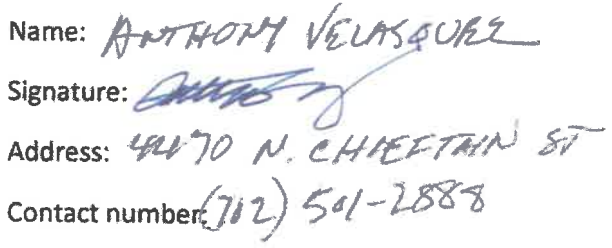 Name: ANTHONY VELASQUEZ
Signature:
Address: N. CHIEFTAIN ST
Contact number: (702) 501-2888